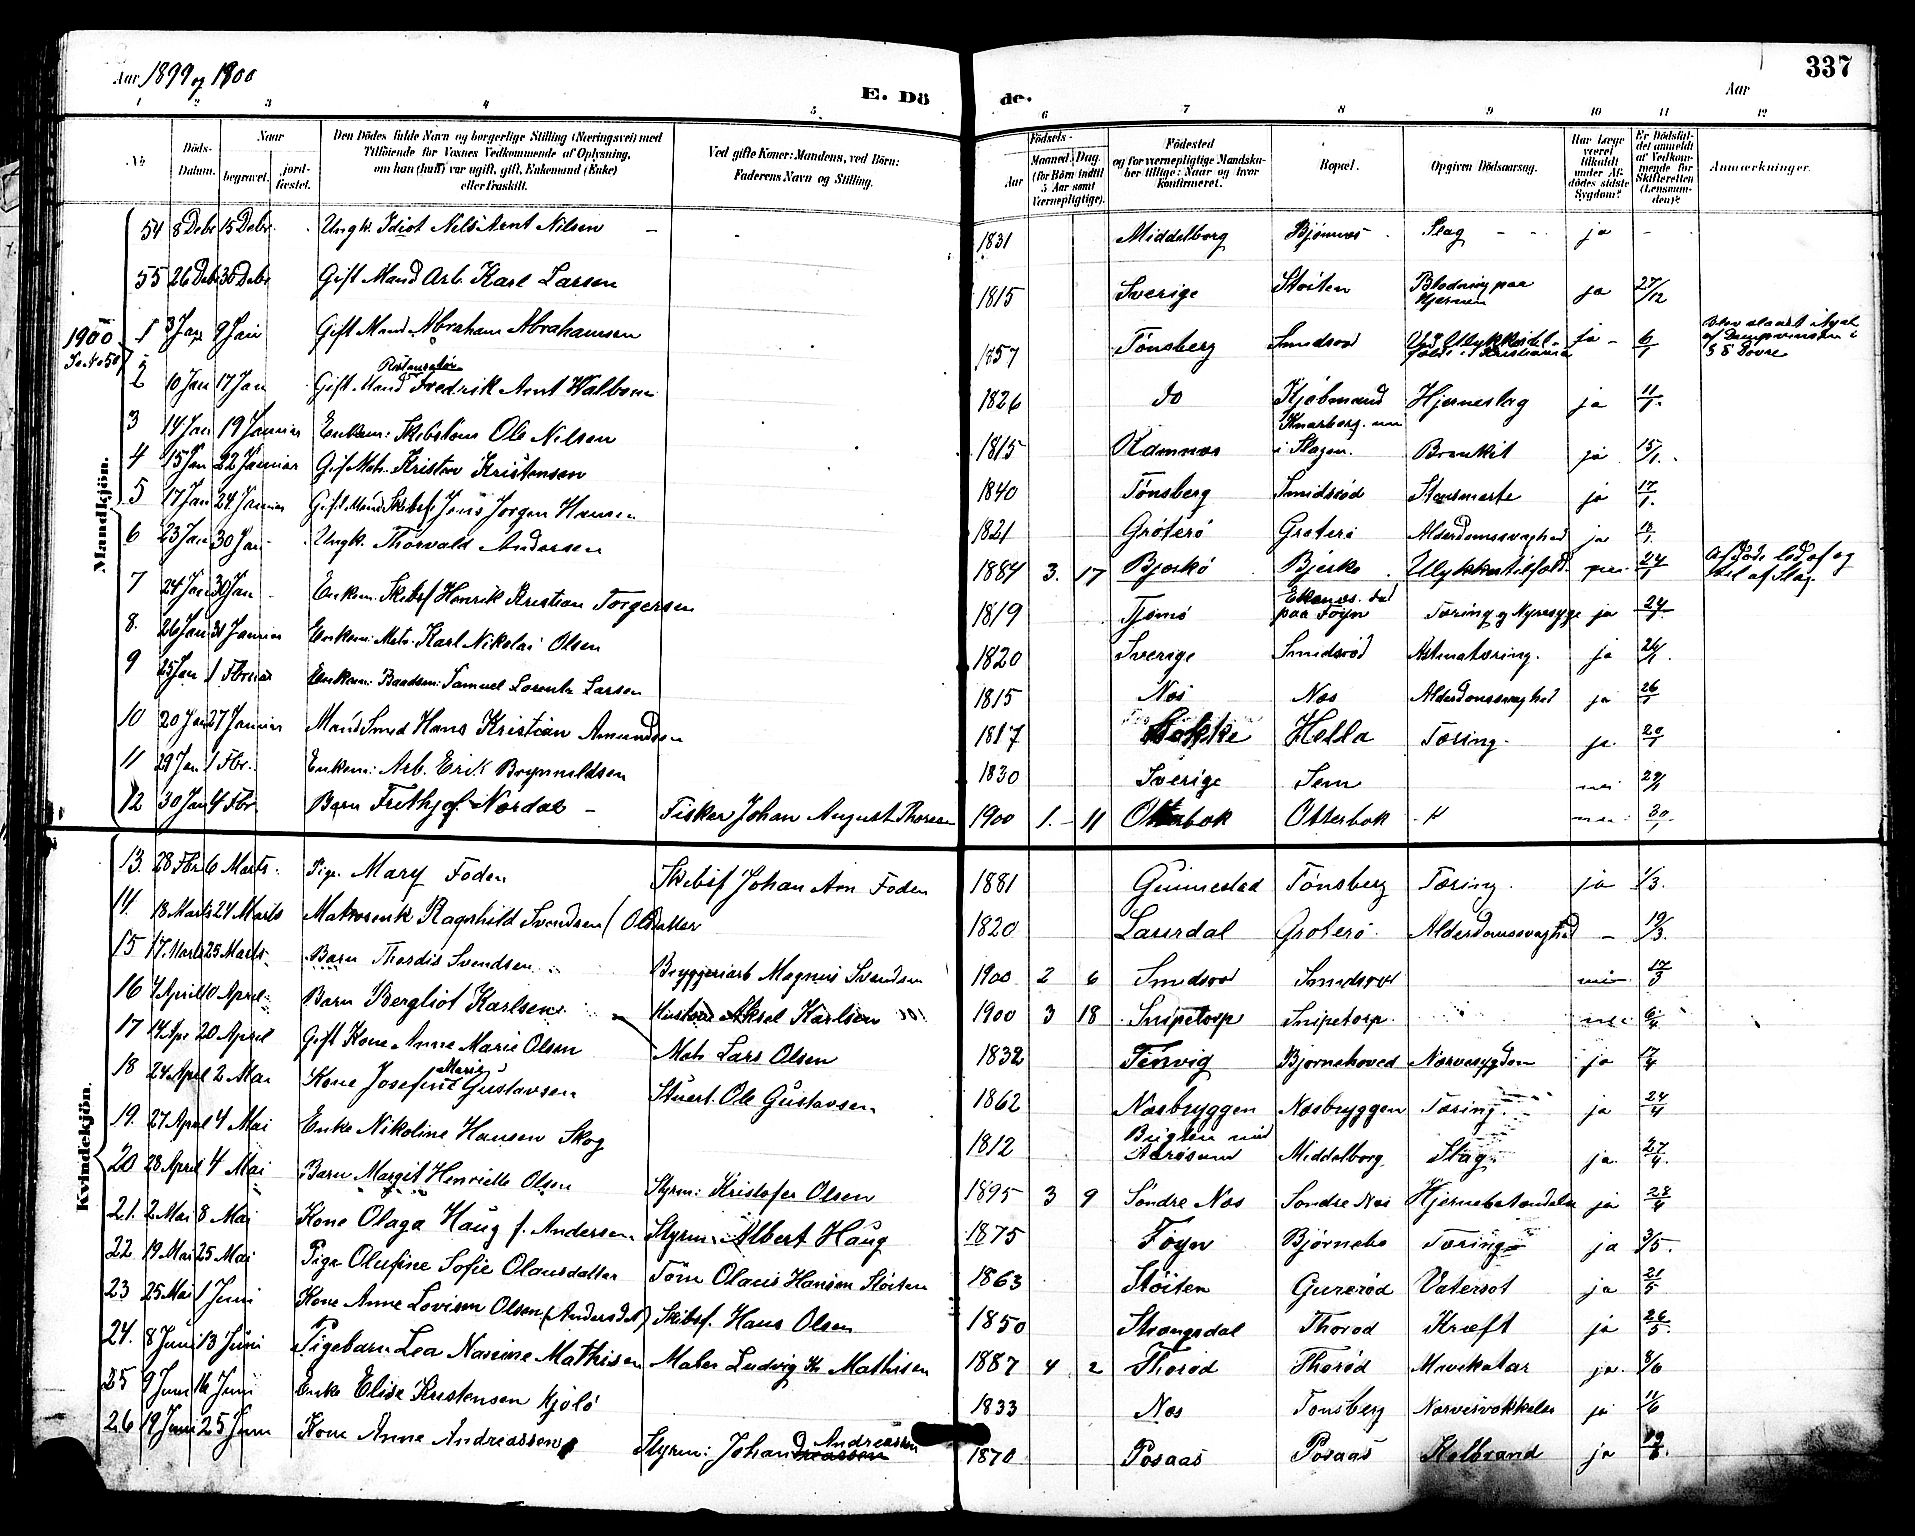 Aar 1899 og 1900
E. Dö
de.
Aar
337
1 2 3 4 5 6 7 8 9 10 11 12
No
Döds-Datum.
Naar
begravet.
jord-fæstet.
Den Dödes fulde Navn og borgerlige Stilling (Næringsvei) med
Tilföiende for Voxnes Vedkommende af Oplysning,
om han (hun) var ugift, gift, Enkemand (Enke)
eller fraskilt.
Ved gifte Koner: Mandens, ved Börn:
Faderens Navn og Stilling.
Födsels-
Aar
Maaned. Dag.
(for Börn indtil
5 Aar samt
Værnepligtige).
Födested
og for værnepligtige Mandska-
ber tillige: Naar og hvor
konfirmeret.
Bopæl.
Opgiven Dödsaarsag.
Har Læge
været
tilkaldt
under Af-
dödes sidste
Sygdom?
Er Dödsfal-
det anmeldt
af Vedkom-
mende for
Skifteretten
(Lensman-
den)?
Anmærkninger.
Mandkjön.
54 8 Debr 15 Debr. Ungk. Idiot Nels Arnt Nilsen 1831 Middelborg Bjönnes Slag ja
55 26 Debr 30 Debr Gift Mand Arb. Karl Larsen 1815 Sverige Stoiten Blodning paa Hjernen ja 27/12
1900
1 3 Jan 9 Jan Gift Mand Abraham Abrahamsen 1857 Tönsberg Smidsrod Ved Ulykkestilfælde i Kristiania ja 6/1
2 10 Jan 17 Jan Gift Mand Fredrik Arnt Walbom 1826 do Kjöbmand Hjerneslag ja 11/1
3 14 Jan 19 Januar Enkem: Skibstöm Ole Nilsen 1815 i Slagen. ja 15/1
4 15 Jan 22 Januar Gift Matr. Kristen Kristensen 1840 Tönsberg Smidsröd ja 17/1
5 17 Jan 24 Januar Gift Mand Skibsf Jens Jorgen Hansen 1821 Gröterö Groterö Alderdomssvaghed ja 18/1
6 23 Jan 30 Jan Ungk. Thorvald Andersen 1884 3. 17 Bjerkö Bjerko Ulykkestilfæld 24/1 Afdöde led af og til af Slag
7 24 Jan 30 Jan Enkem. Skibsf Henrik Kristian Torgersen 1819 Tjömö Ekenes. död paa Föyn Tæring og Nyresyge ja 24/1
8. 26 Jan 31 Januar Enkem: Matr. Karl Nikolai Olsen 1820 Sverige Smidsröd Astmatæring. ja 26/1
9 25 Jan 1 Februar Enkem: Baadsm: Samuel Lorentz Larsen 1815 Nes Nes Alderdomssvaghed ja 26/1
10 20 Jan 27 Januar Mand Smed Hans Kristian Amundsen 1817 Bakke Hella Tæring. ja 20/1
11 29 Jan 1 Fbr. Enkem: Arb. Erik Brynnildsen 1830 Sverige Sem nei 29/1
12 30 Jan 4 Fbr. Barn Frithjof Nordal Fisker Johan August Thoresen 1900 1. 11 Otterbok Otterbok 30/1
Kvindekjön.
13. 28 Fbr 6 Marts. Pige. Mary Foden Skibsf Johan Arn Foden 1881 Gunnestad Tönsberg Tæring. ja 1/3.
14. 18 Marts 24 Marts Matrosenk Ragnhild Svendsen (Olsdatter 1820 Laurdal Groterö. Alderdomssvaghed 19/3.
15 17. Marts 25 Marts. Barn Thordis Svendsen Bryggeriarb Magnus Svendsen 1900 2 6 Smidsrod Smidsrod 17/3
16 4 April 10 April. Barn Bergliot Karlsen Aksel Karlsen 1900 3 18 Snipetorp Snipetorp. 6/4
17 14 Apr 20 April Gift Kone Anne Marie Olsen Matr Lars Olsen 1832 Tenvig Bjornehoved Nervesygdom ja 17/4
18 24 April 2 Mai Kone Josefine Marie Gustavsen Stuert. Ole Gustavsen 1862 Næsbryggen Næsbryggen Tæring. ja 24/4
19. 27 April 4 Mai Enke Nikoline Hansen Skog 1812 Middelborg Slag ja. 27/4.
20 28 April 4 Mai Barn Margit Henriette Olsen Styrm: Kristofer Olsen 1895 3 9 Söndre Nes Sondre Nes Hjernebetændelse ja 28/4
21. 2 Mai 8 Mai Kone Olaga Haug f. Andersen Styrm: Albert Haug 1875 Föyn Björnebo Tæring ja 3/5.
22 19 Mai 25 Mai Pige Olufine Sofie Olausdatter Töm Olaus Hansen Stoiten 1863 Stöiten Gureröd Vatersot ja 21/5
23 25 Mai 1 Juni Kone Anne Lovisen Olsen (Andersdat) Skibsf. Hans Olsen 1850 Strangsdal Thorod Kræft ja 26/5.
24. 8 Juni 13 Juni Pigebarn Lea Nanine Mathisen Maler Ludvig Kr Mathisen 1887 4 2 Thoröd Thoröd Mavekatar ja. 8/6
25 9 Juni 16 Juni Enke Elise Kristensen Kjölö 1833 Nes Tonsberg Nervesvækkelse ja 11/6
26 19 Juni 25 Juni Kone Anne Andreassen Styrm: Johan Andreassen 1870 Posaas Posaas Kolbrand ja 19/6